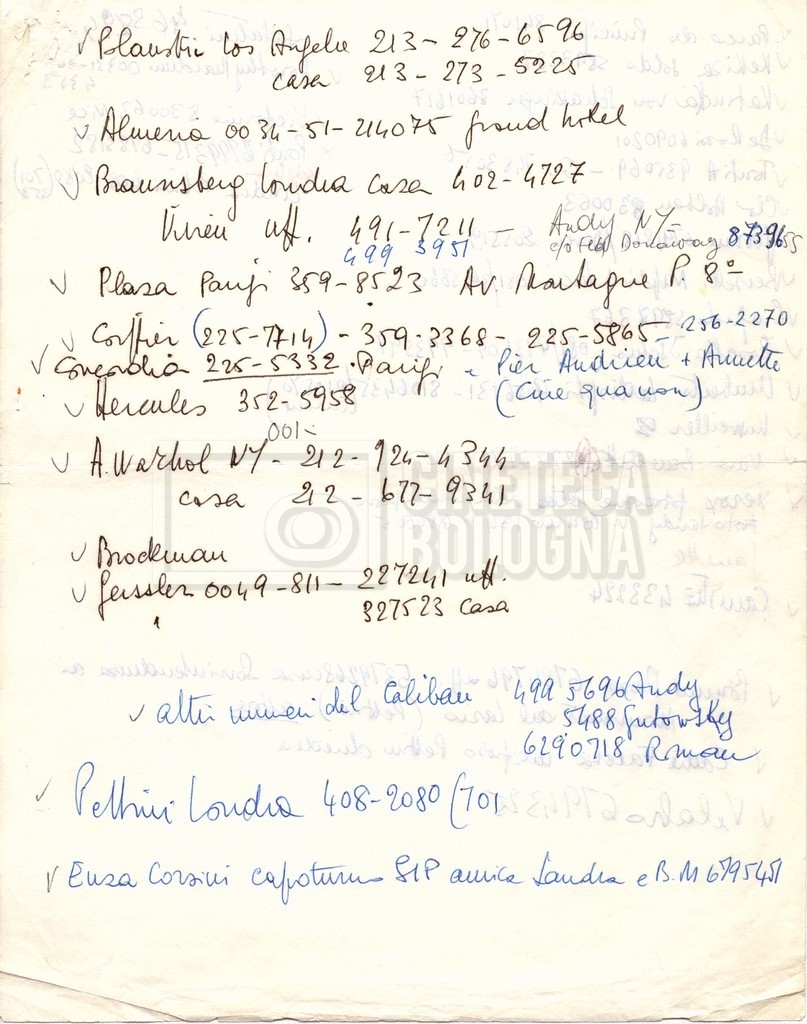 ✓ Blaustein Los Angeles 213-276-6596
casa 213-273-5225
✓ Almeria 0034-51-214075 grand hotel
✓ Braunsberg Londra casa 402-4727
Vivien uff. 491-7211 — Andy NY-
499 3951 c/o Fred Donaway 8739655
✓ Plaza Parigi 359-8523 Av. Montagne P. 8º
✓ (225-7714) - 359-3368 - 225-5865 - 256-2270
✓ Concordia 225-5332 Parigi - Pier Andrieu + Annette
✓ Hercules 352-5958 (Cine qua non)
001-
✓ A. Warhol NY - 212-924-4344
casa 212-677-9341
CINETECA
BOLOGNA
✓ Brockman
✓ Geissler 0049-811- 227241 uff.
327523 casa
✓ altri numeri del Caliban 499 5696 Andy
5488 Gutowsky
6290718 Roman
✓ Pettini Londra 408-2080 (701
✓ Enza Corsini capoturno SIP amica Sandra e B.M 6795451